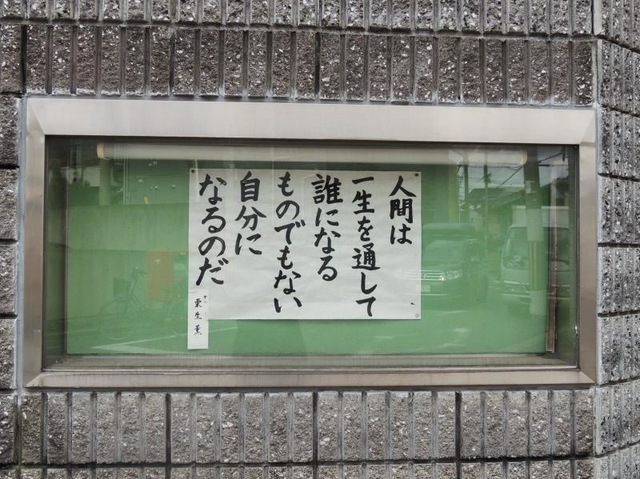 人間は
一生を通して
誰になる
ものでもない
自分に
なるのだ